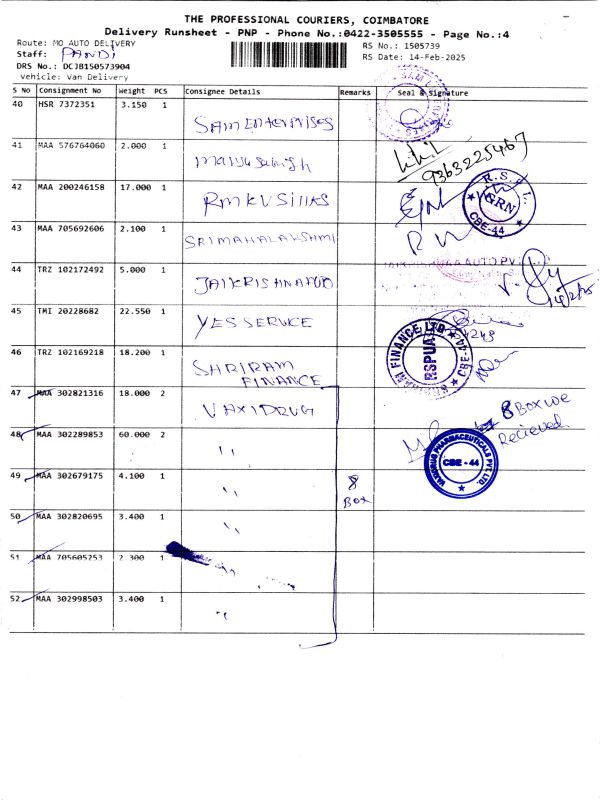 THE PROFESSIONAL COURIERS, COIMBATORE
Delivery Runsheet - PNP - Phone No.:0422-3505555 - Page No.:4
Route: MO AUTO DELIVERY RS No.: 1505739
Staff: PANDI RS Date: 14-Feb-2025
DRS No.: DCJB150573904
Vehicle: Van Delivery
S No Consignment No Weight PCS Consignee Details Remarks Seal & Signature
40 HSR 7372351 3.150 1 SAM ENTERPRISES
41 MAA 576764060 2.000 1
9363225467
42 MAA 200246158 17.000 1 RMKV SILKS
R.S.P.L. GRN CBE-44
43 MAA 705692606 2.100 1 SRI MAHALAKSHMI
44 TRZ 102172492 5.000 1
14/2/25
45 TMI 20228682 22.550 1 YES SERVICE
46 TRZ 102169218 18.200 1 SHRIRAM
FINANCE
FINANCE LTD RSPUA CBE-44
47 MAA 302821316 18.000 2 VAXIDRUG
8 BOX
Recieved
48 MAA 302289853 60.000 2 "
VAXIDRUG PHARMACEUTICALS PVT. LTD. CBE - 44
49 MAA 302679175 4.100 1 " 8
BOX
50 MAA 302820695 3.400 1 "
51 MAA 705605253 2.300 1 "
52 MAA 302998503 3.400 1 "